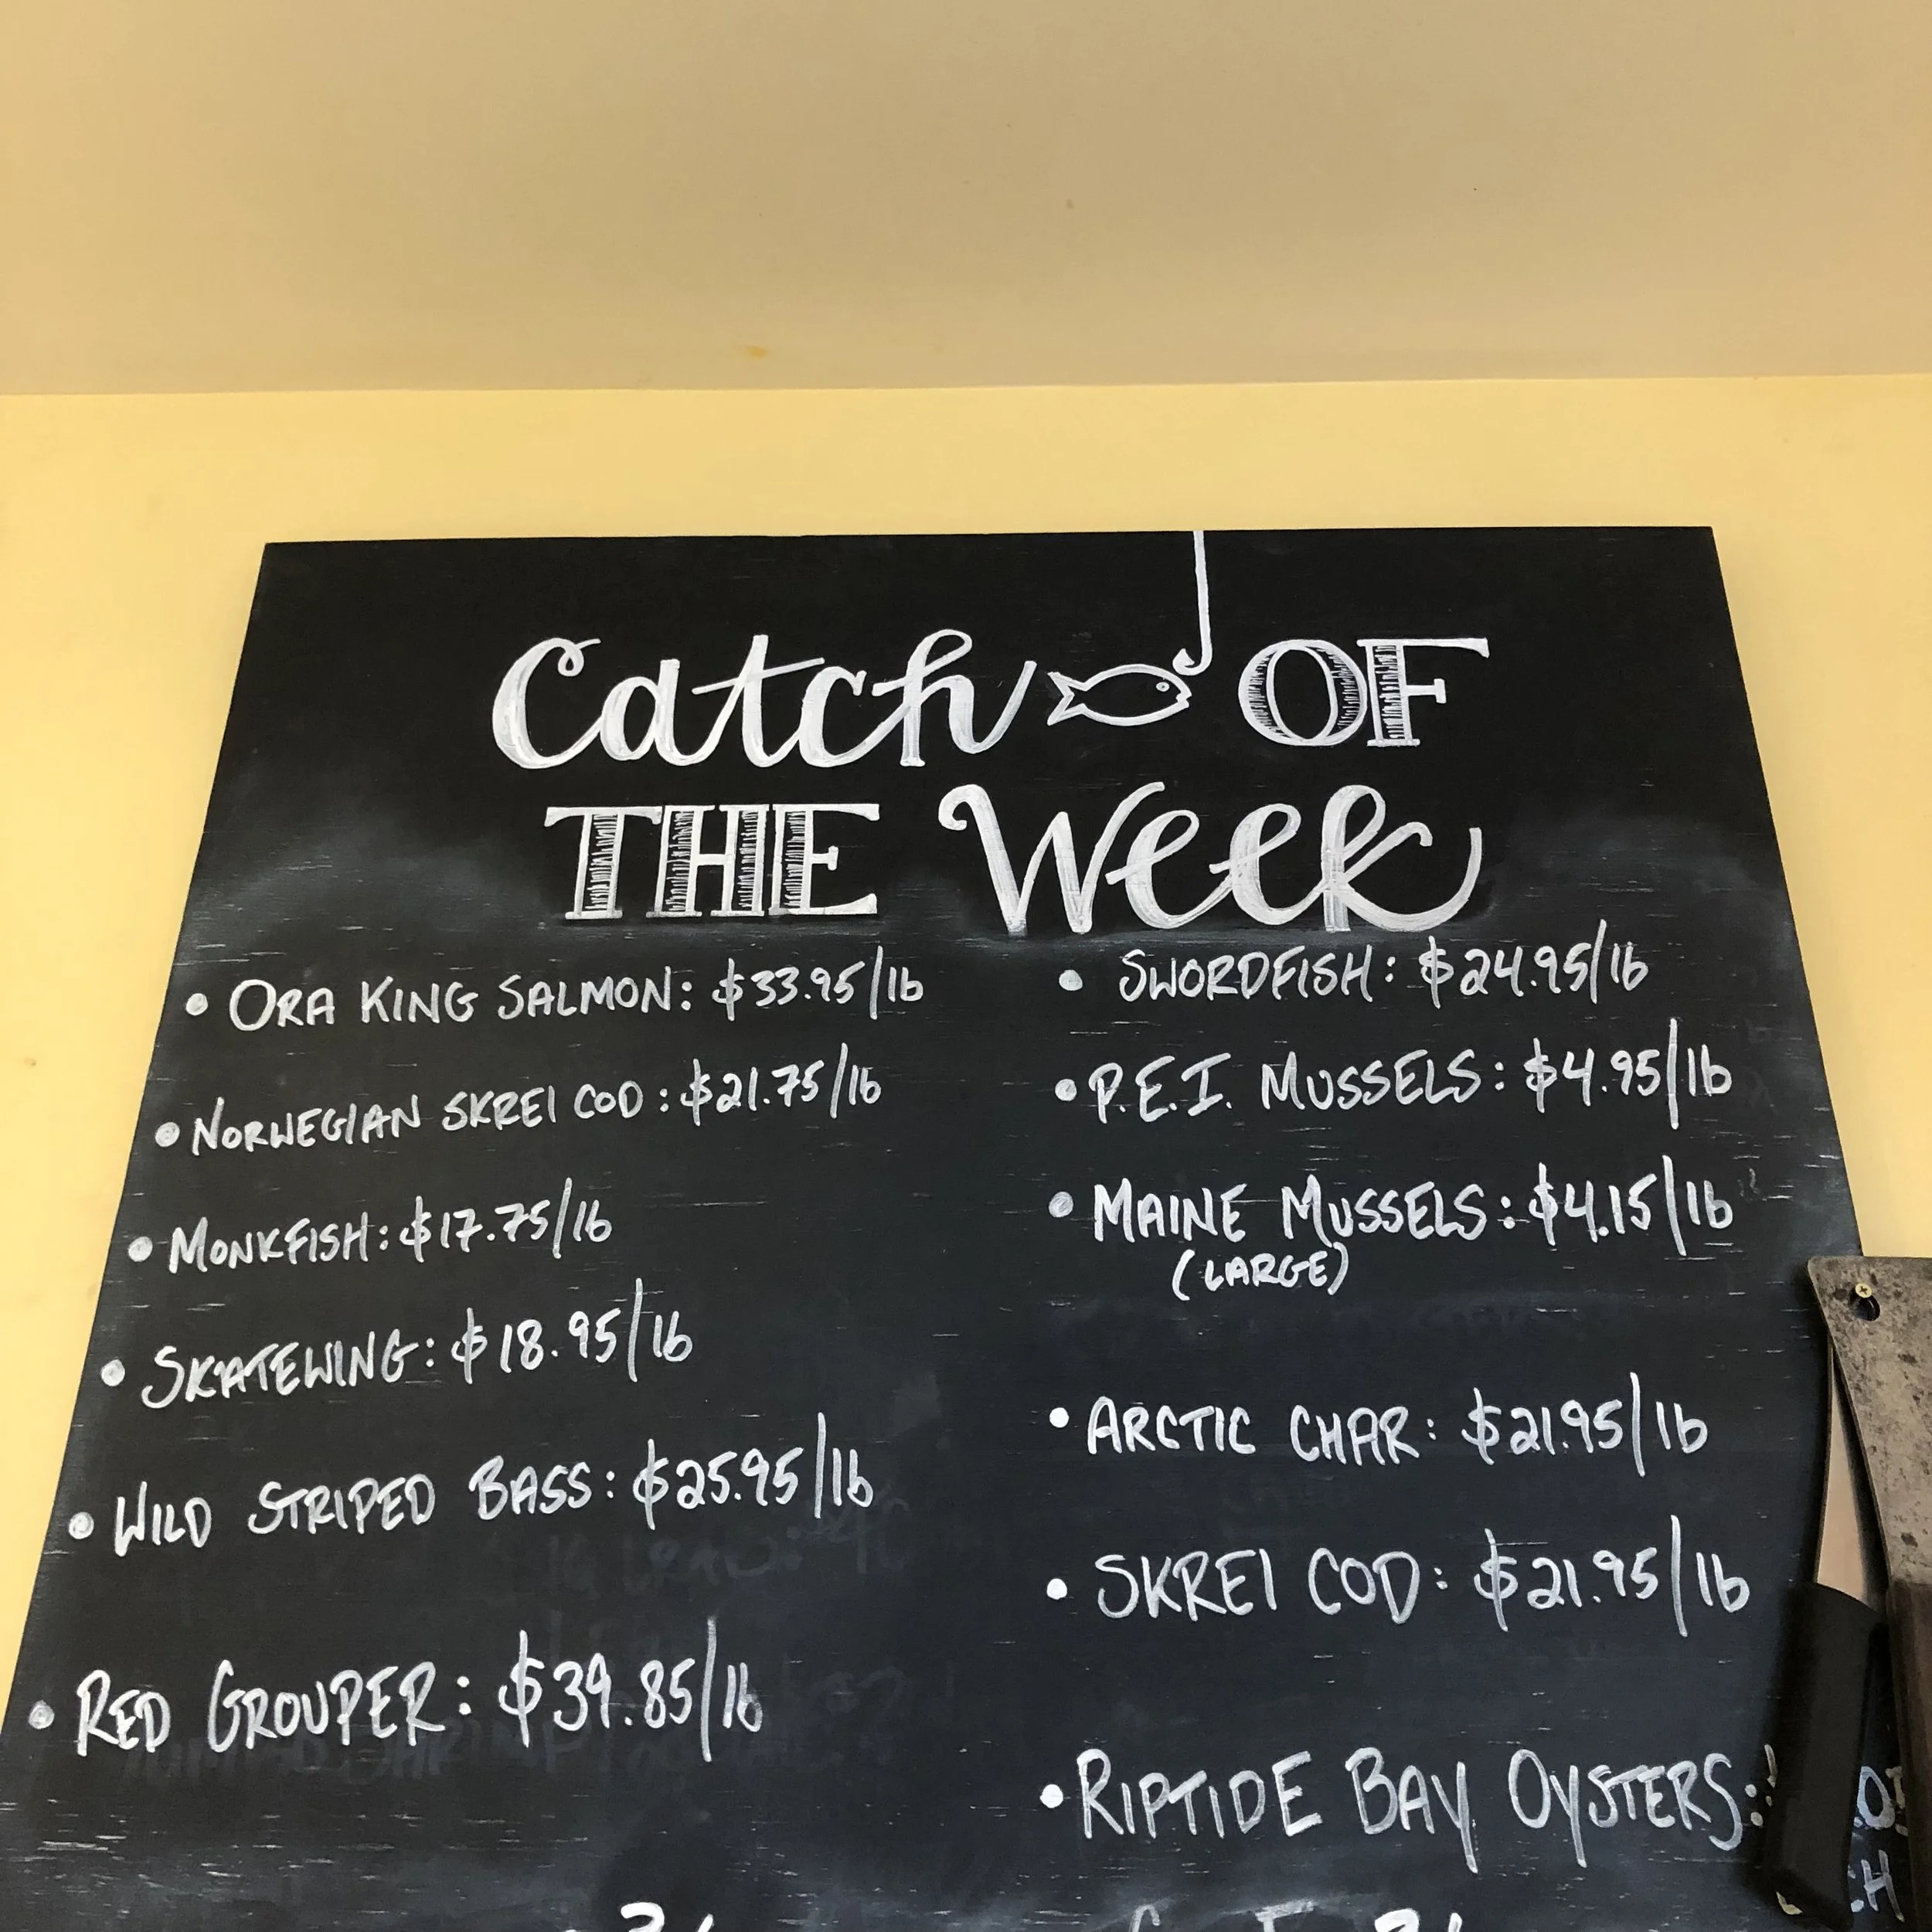 Catch OF
THE Week
• ORA KING SALMON: $33.95/lb
• NORWEGIAN SKREI COD: $21.75/lb
• MONKFISH: $17.75/lb
• SKATEWING: $18.95/lb
• WILD STRIPED BASS: $25.95/lb
• RED GROUPER: $39.85/lb
• SWORDFISH: $24.95/lb
• P.E.I. MUSSELS: $4.95/lb
• MAINE MUSSELS: $4.15/lb
(LARGE)
• ARCTIC CHAR: $21.95/lb
• SKREI COD: $21.95/lb
• RIPTIDE BAY OYSTERS: